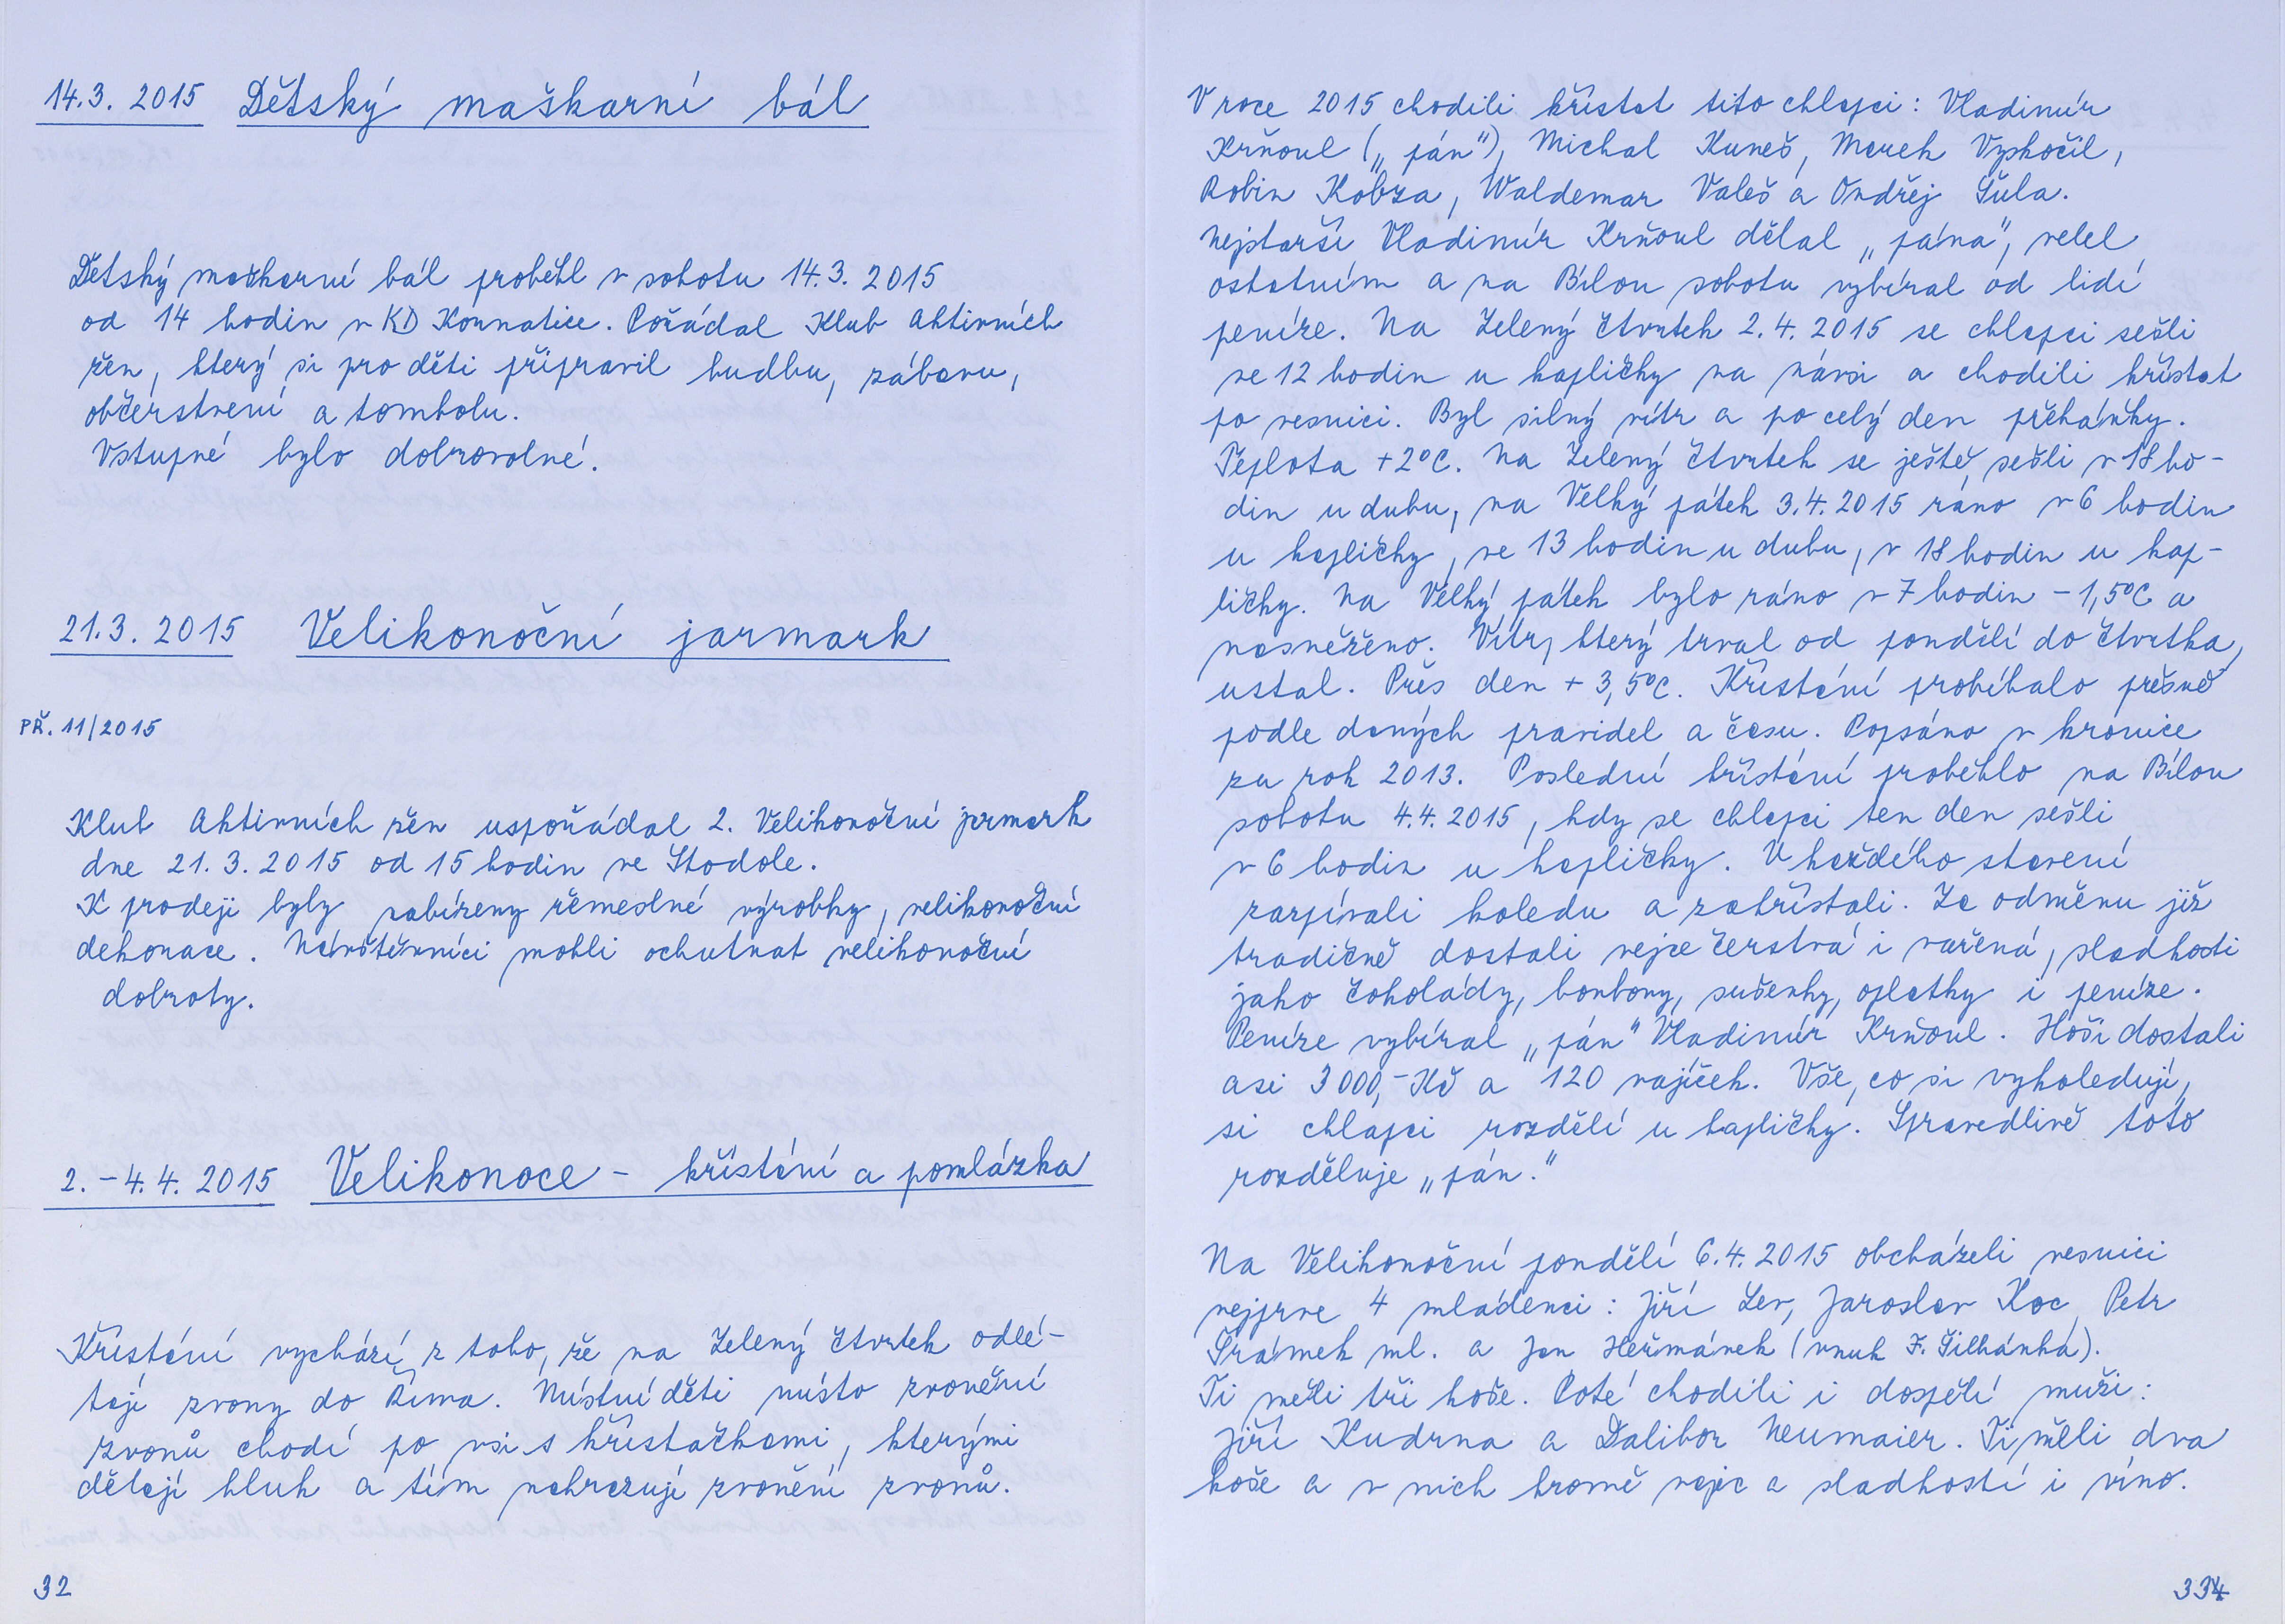 14.3. 2015 Dětský maškarní bál
Dětský maškarní bál proběhl v sobotu 14.3. 2015
od 14 hodin v KD Kornatice. Pořádal Klub Aktivních
žen, který si pro děti připravil hudbu, zábavu,
občerstvení a tombolu.
Vstupné bylo dobrovolné.
21.3. 2015 Velikonoční jarmark
PŘ. 11/2015
Klub Aktivních žen uspořádal 2. Velikonoční jarmark
dne 21.3. 2015 od 15 hodin ve Stodole.
K prodeji byly nabízeny řemeslné výrobky, velikonoční
dekorace. Návštěvníci mohli ochutnat velikonoční
dobroty.
2. - 4.4. 2015 Velikonoce - křístání a pomlázka
Křístání vychází z toho, že na Zelený čtvrtek odlé-
tají zvony do Říma. Místní děti místo zvonění
zvonů chodí po vsi s křístačkami, kterými
dělají hluk a tím nahrazují zvonění zvonů.
32
V roce 2015 chodili křístat tito chlapci: Vladimír
Krňoul („pán"), Michal Kuneš, Marek Vyskočil,
Robin Kobza, Waldemar Valeš a Ondřej Šůla.
Nejstarší Vladimír Krňoul dělal „pána", velel
ostatním a na Bílou sobotu vybíral od lidí
peníze. Na Zelený čtvrtek 2.4. 2015 se chlapci sešli
ve 12 hodin u kapličky na návsi a chodili křístat
po vesnici. Byl silný vítr a po celý den přeháňky.
Teplota +2°C. Na Zelený čtvrtek se ještě sešli v 18 ho-
din u dubu, na Velký pátek 3.4. 2015 ráno v 6 hodin
u kapličky, ve 13 hodin u dubu, v 18 hodin u kap-
ličky. Na Velký pátek bylo ráno v 7 hodin -1,5°C a
nasněženo. Vítr, který trval od pondělí do čtvrtka,
ustal. Přes den + 3,5°C. Křístání probíhalo přesně
podle daných pravidel a času. Popsáno v kronice
za rok 2013. Poslední křístání proběhlo na Bílou
sobotu 4.4. 2015, kdy se chlapci ten den sešli
v 6 hodin u kapličky. U každého stavení
zazpívali koledu a zakřístali. Za odměnu již
tradičně dostali vejce čerstvá i vařená, sladkosti
jako čokolády, bonbony, sušenky, oplatky i peníze.
Peníze vybíral „pán" Vladimír Krňoul. Hoši dostali
asi 3 000,- Kč a 120 vajíček. Vše, co si vykoledují,
si chlapci rozdělí u kapličky. Spravedlivě toto
rozděluje „pán."
Na Velikonoční pondělí 6.4. 2015 obcházeli vesnici
nejprve 4 mládenci: Jiří Lev, Jaroslav Koc, Petr
Šrámek ml. a Jan Heřmánek (vnuk F. Šilhánka).
Ti měli tři koše. Poté chodili i dospělí muži:
Jiří Kudrna a Dalibor Neumaier. Ti měli dva
koše a v nich kromě vajec a sladkostí i víno.